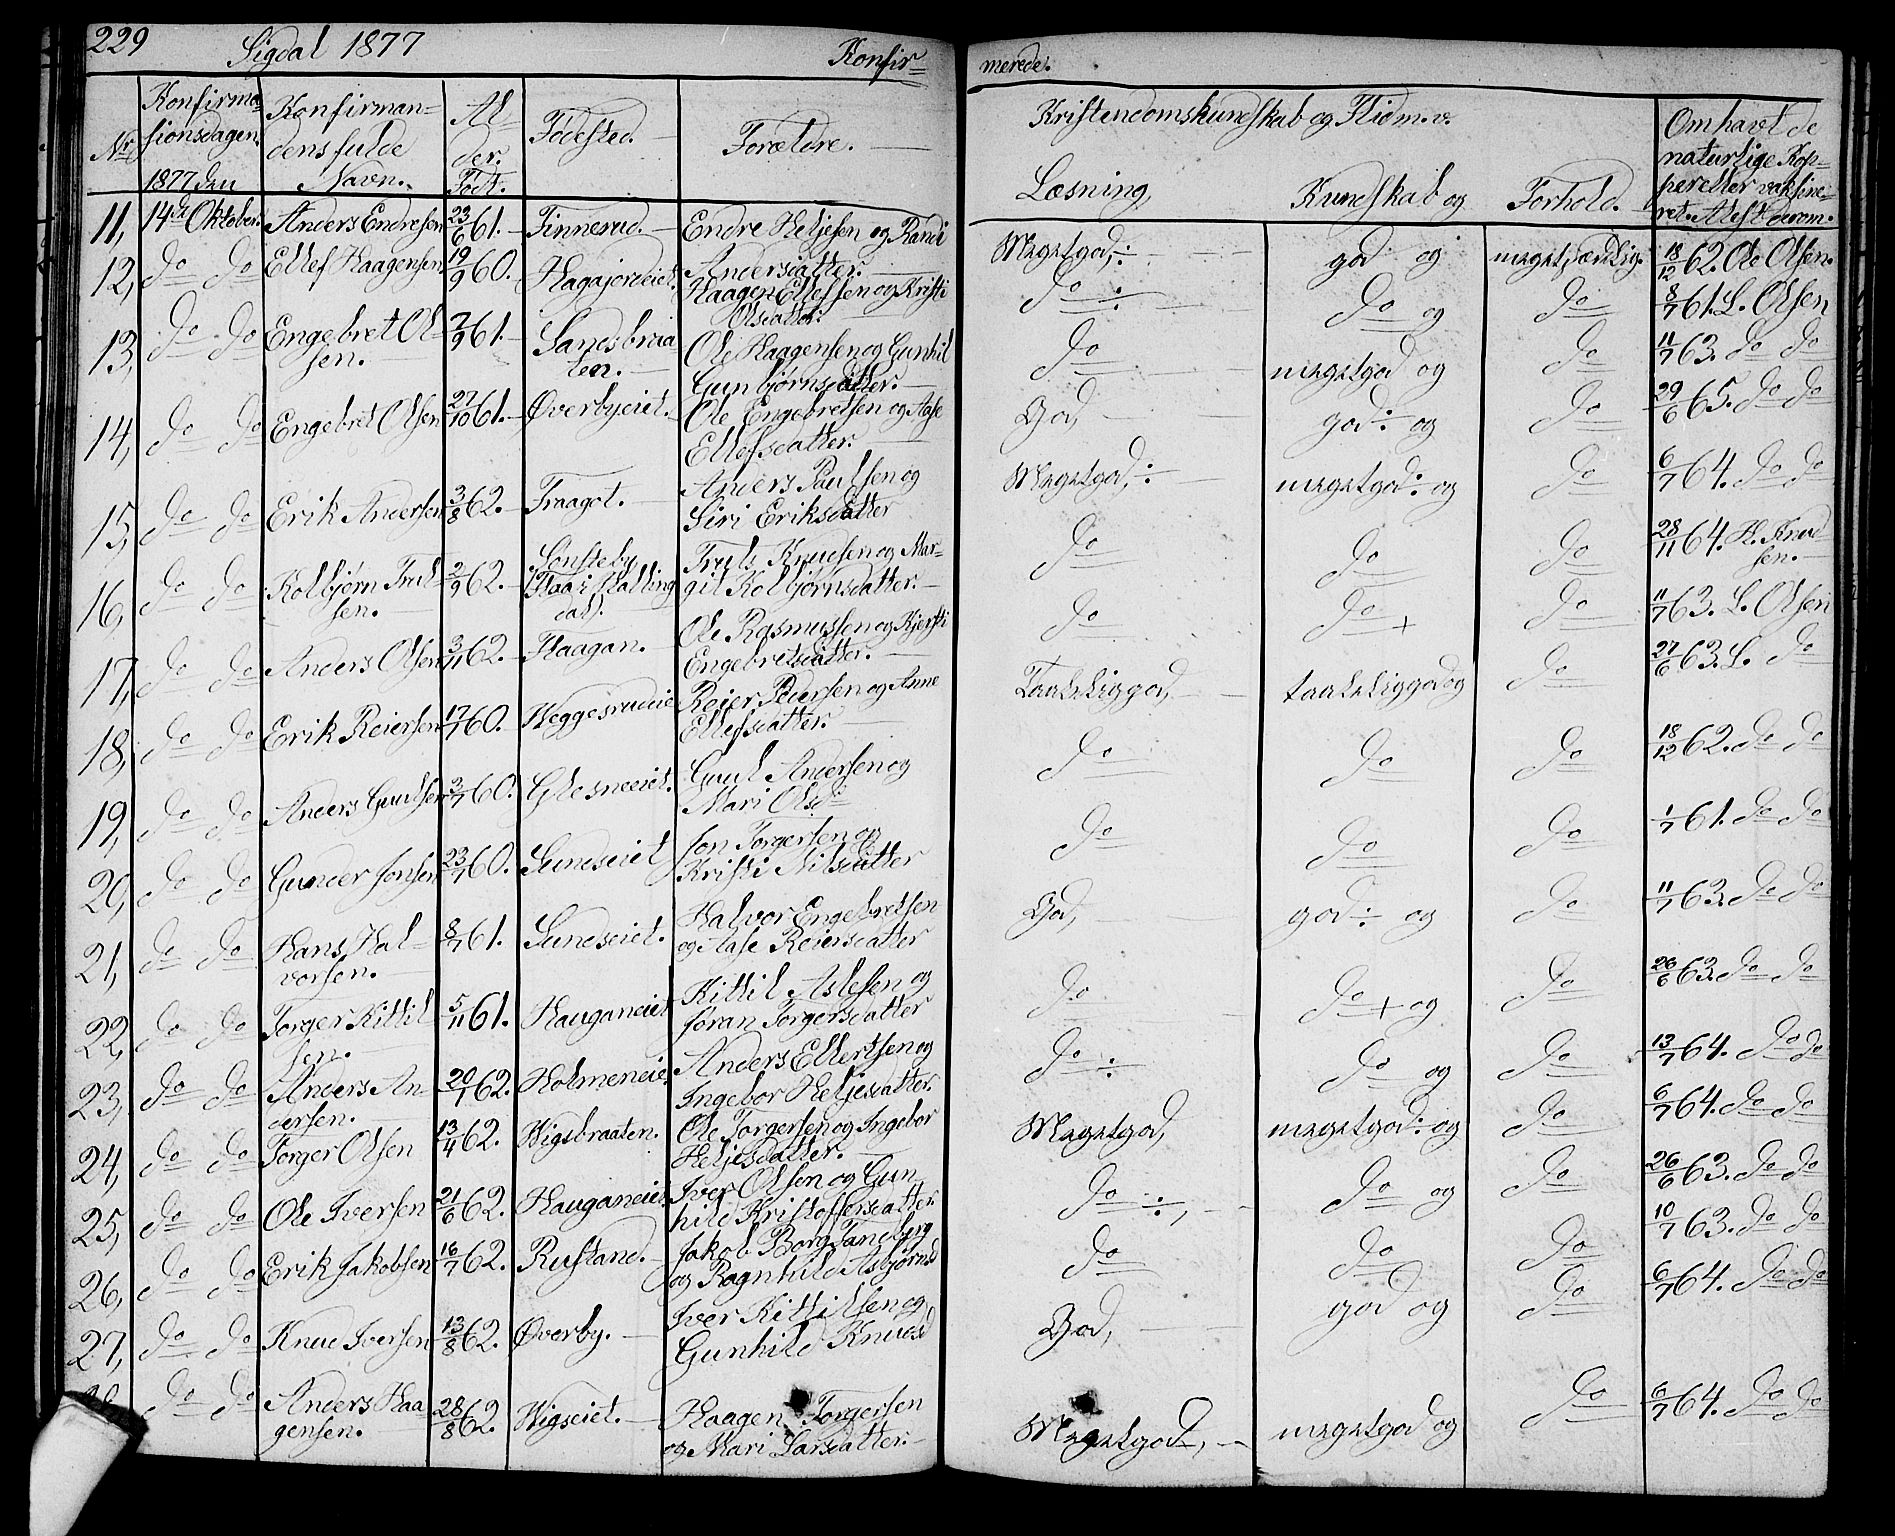 229 Sigdal 1877 Konfir=
merede.
Nr. Konfirma= Konfirman= Al Fødested. Forældre.
sionsdagen. dens fulde der.
1877 den Navn. Født.
Kristendomskundskab og Flid m. v. Omhavt de
naturlige Kop=
Læsning, Kundskab og Forhold. per eller vakcine=
ret. Attest derom.
11, 14de Oktober. Anders Endresen 23/6 61. Tinnerud. Endre Heljesen og Randi
Andersdatter.
Megetgod, god og meget sædelig. 18/12 62. Ole Olsen.
12, do do Ellef Haagensen 19/9 60. Hagajordeiet. Haagen Ellefsen og Kristi
Olsdatter.
do do og do 8/7 61. L. Olsen
13, do do Engebret Ol= 7/9 61. Sandsbraa Ole Haagensen og Gunhil
sen. ten. Gunbjørnsdatter.
do megetgod og do 11/7 63. do do
14, do do Engebret Olsen 27/10 61. Øverbyeiet. Ole Engebretsen og Aase
Ellefsdatter.
God, god og do 29/6 65. do do
15, do do Erik Andersen 3/8 62. Fraagot. Anders Paulsen og
Siri Eriksdatter
Megetgod, megetgod og do 6/7 64. do do
16, do do Kolbjørn Trul= 2/9 62. Sønsteby Truls Knudsen og Mar=
sen. Flaa i Halling git Kolbjørnsdatter.
dal.
do do do 28/11 64. H. Knud
sen.
17, do do Anders Olsen 3/11 62. Haagan. Ole Rasmussen og Kjersti
Engebretsdatter.
do do + do 11/7 63. L. Olsen
18, do do Erik Reiersen 17/7 60. Heggesrudeie Reier Pedersen og Anne
Ellefsdatter.
Taaleliggod, taaleliggod og do 27/6 63. L. do
19, do do Anders Gulsen 3/7 60. Glesneeiet. Guul Andersen og
Mari Olsd
do do do 18/12 62. do do
20, do do Gunder Jonsen 23/7 60. Sundseiet Jon Torgersen og
Kristi Nilsdatter
do do do 1/7 61. do do
21, do do Hans Hal= 8/7 61. Sundseiet. Halvor Engebretsen
vorsen. og Aase Reiersdatter
God, god og do 11/7 63. do do
22, do do Torger Kittil 5/11 61. Hauganeiet Kittil Aslesen og
sen. Jøran Torgersdatter
do do + og do 26/6 63. do do
23, do do Anders An= 20/1 62. Holmeneiet Anders Ellertsen og
dersen. Ingebor Heljesdatter.
do do og do 13/7 64. do do
24, do do Torger Olsen 13/4 62. Wigsbraaten. Ole Torgersen og Ingebor
Heljesdatter.
Megetgod, megetgod og do 6/7 64. do do
25, do do Ole Iversen 21/6 62. Hauganeiet Iver Olsen og Gun
hild Kristoffersdatter
do do og do 26/6 63. do do
26, do do Erik Jakobsen 16/7 62. Rustand. Jakob Borg Tandberg
og Ragnhild Asbjørnsd
do do do 10/7 63. do do
27, do do Knud Iversen 13/8 62. Øverby. Iver Kittilsen og
Gunhild Knudsd
God, god og do 6/7 64. do do
do do Anders Haa 28/8 62. Wigseiet. Haagen Torgersen
gensen. og Mari Larsdatter.
Megetgod, megetgod og do 6/7 64. do do